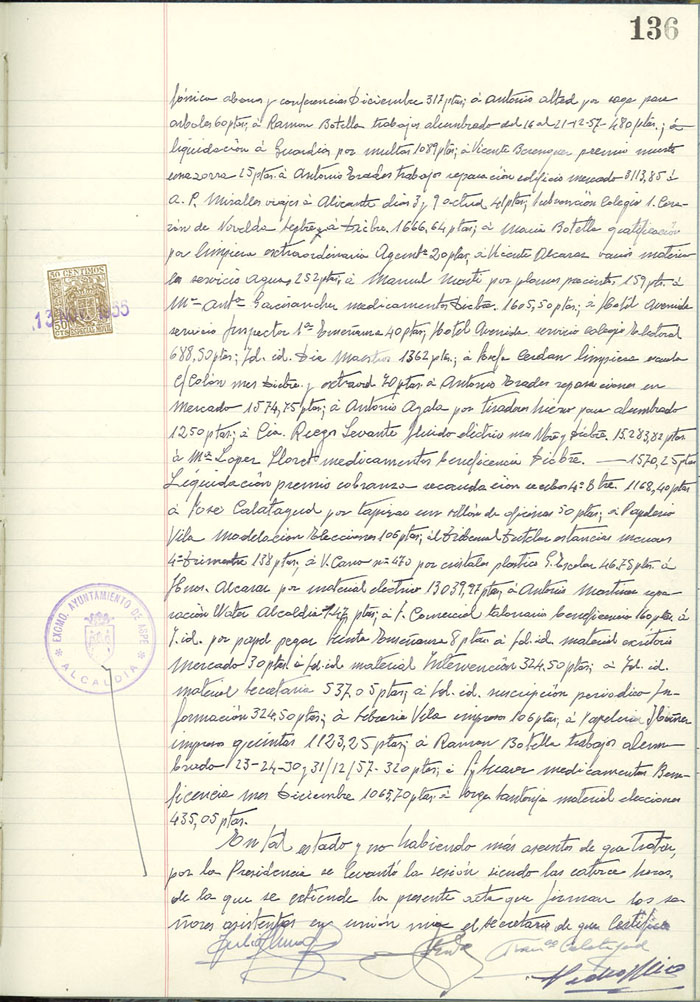 136
fónica abonos y conferencias Diciembre 317 ptas; á Antonio Alted por para
arboles 60 ptas; á Ramon Botella trabajos alumbrado del 16 al 21-12-57- 480 ptas.; á
liquidación á Guardia por multas 1089 ptas; á Vicente Berenguer premio muerte
zorra 25 ptas. á Antonio Prades trabajos reparación edificio mercado 3113,85 á
A. P. Miralles viajes á Alicante dias 3 y 9 actual 41 ptas; Subvención Colegio
de Novelda á Dicbre. 1666,64 ptas; á Maria Botella gratificación
por limpieza extraordinaria 20 ptas, á Vicente Alcaraz varios
servicio aguas 252 ptas; á Manuel por planos 159 pts. á
Mª Antª Garcisanchez medicamentos Dicbre. 1605,50 ptas; á Hotel Avenida
servicio Inspector 1ª Enseñanza 40 ptas; Hotel Avenida servicio colegio Electoral
688,50 ptas; Id. id. Dia Maestro 1362 ptas.; á Josefa Cerdan limpieza escuela
C/Colón mes Dicbre. y 70 ptas á Antonio Prades reparaciones en
Mercado 1574,75 ptas; á Antonio por hierro para alumbrado
1250 ptas; á Cia. Riegos Levante fluido electrico mes Nbre y Dicbre. 15.283,82 ptas.
á Mª Lopez Lloret medicamentos beneficencia Dicbre. — 1570,25 ptas
Liquidación premio cobranza recaudacion recibos 4º 1168,40 ptas
á José Calatayud por tapizar un sillón de oficinas 50 ptas; á Papeleria
Vila Elecciones 106 ptas; á Tribunal Tutelar estancias menores
4º trimestre 138 ptas, á V. Cano nº 470 por cristales plastico 46.75 ptas. á
Hnos. Alcaraz por material electrico 13039,97 ptas; á Antonio Martinez
reparación Water Alcaldia ptas; á I. Comercial talonario beneficencia 160 ptas. á
I. id. por papel pegar Enseñanza 8 ptas. á Id. id. material escritorio
Mercado 30 ptas. á Id. id material Intervencion 324.50 ptas; á Id. id.
material secretaria 537,05 ptas; á Id. id. suscripción periodico In-
formación 324,50 ptas; á Libreria Vila impresos 106 ptas; á Papeleria
impresos quintas 1123,25 ptas; á Ramon Botella trabajos alum-
brado 23-24-30 y 31/12/57- 320 ptas; á medicamentos Bene-
ficencia mes Diciembre 1065,70 ptas. á Jorge material elecciones
435,05 ptas.
En tal estado y no habiendo más asuntos de que tratar,
por la Presidencia se levantó la sesión siendo las catorce horas,
de la que se extiende la presente acta que firman los se-
ñores asistentes en unión mia el secretario de que Certifico
50 CENTIMOS
50 CTS
ESPECIAL MOVIL
EXCMO. AYUNTAMIENTO DE ASPE
ALCALDIA